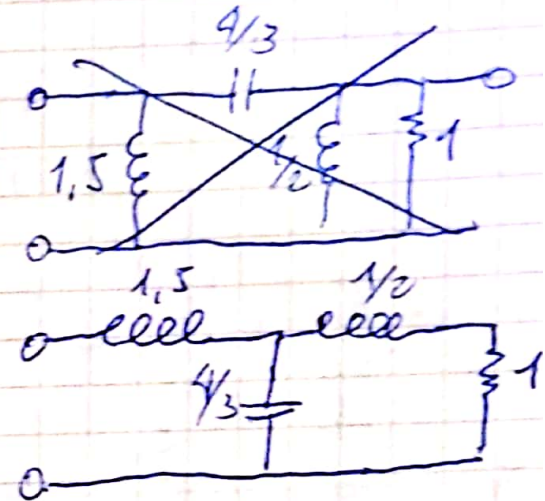 4/3
1,5 1/2 1
1,5 1/2
4/3 1